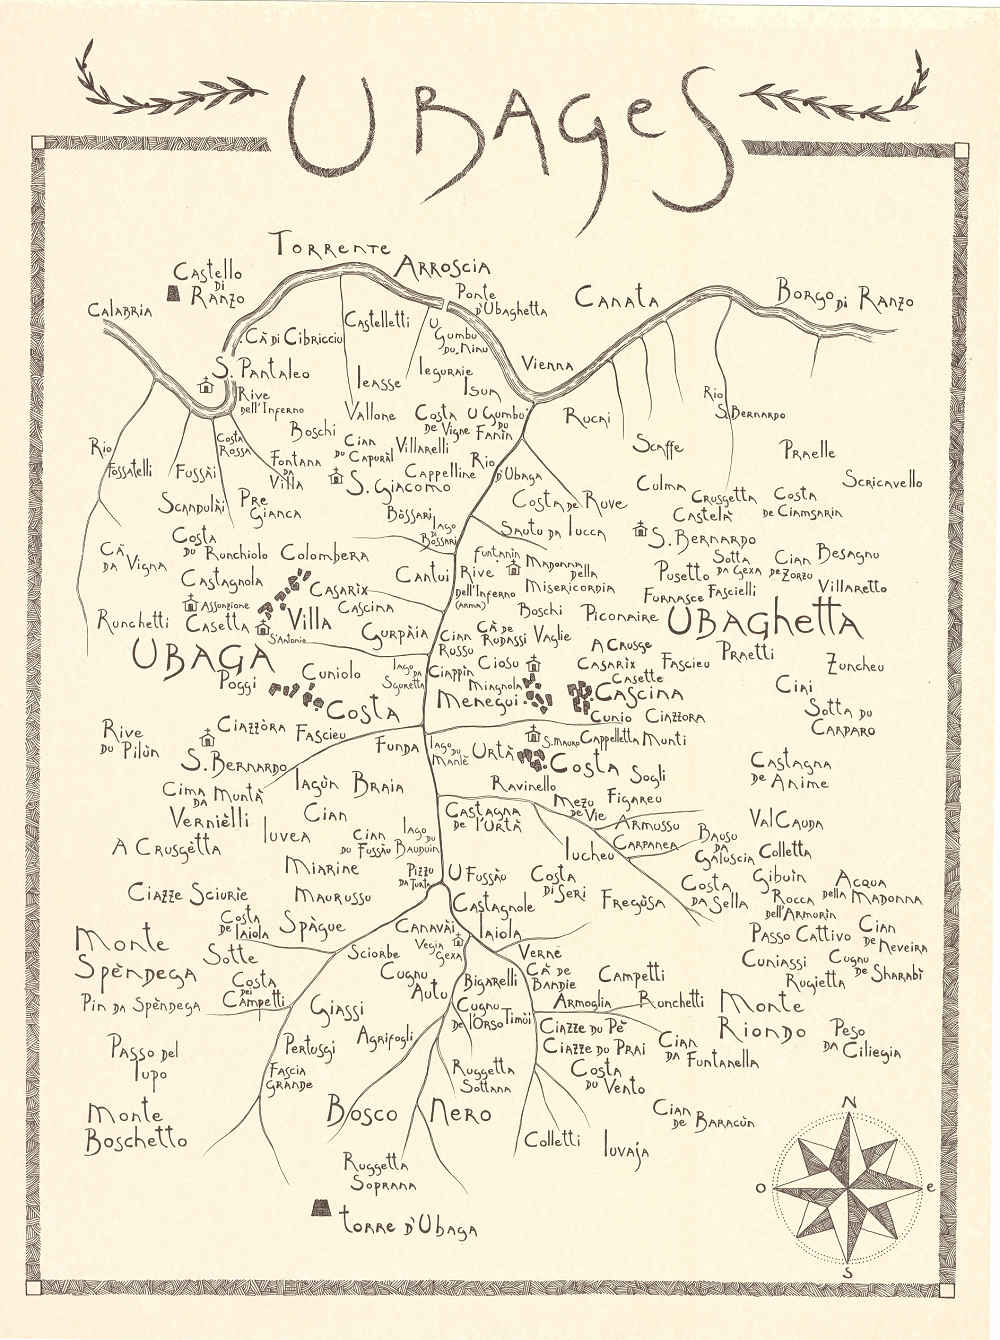 UBAGES
TORRENTE
ARROSCIA
CASTELLO
DI
RANZO
PONTE
D'UBAGHETTA
CANATA
BORGO DI RANZO
CALABRIA
CÀ DI CIBRICCIU
CASTELLETTI
U
GUMBU
DU NINU
S. PANTALEO
LEASSE
LEGURAIE
ISUR
VIENNA
RIVE
DELL'INFERNO
VALLONE
COSTA
DE VIGNE
U GUMBU
DU
FANIN
RUCAI
RIO
S. BERNARDO
BOSCHI
COSTA
ROSSA
CIAN
DU CAPURÀL
VILLARELLI
SCAFFE
PRAELLE
RIO
FOSSATELLI
FUSSÀI
FONTANA
DA
VILLA
S. GIACOMO
CAPPELLINE
RIO
D'UBAGA
CULMA
SCRICAVELLO
SCANDULÀI
PRE
GIANCA
COSTA DE ROVE
CRUSGETTA
COSTA
DE CIAMSARIN
CASTELÀ
BÒSSARI
LAGO
DI
BOSSARI
SAUTU DA LUCCA
S. BERNARDO
COSTA
DU RUNCHIOLO
COLOMBERA
CÀ
DA VIGNA
CASTAGNOLA
CANTUI
FUNTANIN
RIVE
DELL'INFERNO
(ARMA)
MADONNA
DELLA
MISERICORDIA
PUSETTO
SOTTA
DA GEXA
CIAN
DE ZORZU
BESAGNU
FURNASCE
FASCIELLI
VILLARETTO
CASARÌX
CASCINA
ASSUNZIONE
CASETTA
VILLA
S. ANTONIO
BOSCHI
PICONAIRE
UBAGHETTA
RUNCHETTI
GURPÀIA
CIAN
RUSSO
CÀ DE
RUDASSI
VAGLIE
A CRUSGE
UBAGA
POGGI
CUNIOLO
LAGO
DA
SGURETTA
CIAPPIN
CIOSU
CASARÌX
FASCIEU
PRAETTI
ZUNCHEU
MIAGNOLA
MENEGUI
CASETTE
CASCINA
CIAI
COSTA
CUNIO
CIAZZORA
SOTTA DU
CARPARO
RIVE
DU PILÙN
CIAZZÒRA
FASCIEU
FUNDA
LAGO
DU
MANLÈ
S. MAURO
CAPPELLETTA
MUNTI
S. BERNARDO
URTÀ
COSTA
SOGLI
CASTAGNA
DE ANIME
CIMA
DA MUNTÀ
LAGÙN
BRAIA
RAVINELLO
VERNIÈLLI
CIAN
CASTAGNA
DE L'URTÀ
MEZU
DE VIE
FIGAREU
ARMUSSU
VALCAUDA
A CRUSGÈTTA
LUVEA
CIAN
DU FUSSÀU
LAGO
DU
BAUDUIN
LUCHEU
CARPANEA
BAUSU
DA
GALUSCIA
COLLETTA
MIARINE
PIZZU
DA TURTA
U FUSSÀU
COSTA
DI SERI
GIBUIN
ACQUA
DELLA MADONNA
CIAZZE SCIURIE
MAURUSSU
FREGÙSA
COSTA
DA SELLA
ROCCA
DELL'ARMORIN
CASTAGNOLE
COSTA
DE LAIOLA
SPÀGUE
CANAVÀI
LAIOLA
PASSO CATTIVO
CIAN
DE NEVEIRA
MONTE
SPÈNDEGA
SOTTE
SCIORBE
VEGIA
GEXA
VERNE
CUNIASSI
CUGNU
DE SHARABÌ
COSTA
DEI
CAMPETTI
CUGNU
AUTU
BIGARELLI
CÀ DE
BANDIE
CAMPETTI
RUGIETTA
PIN DA SPÈNDEGA
GIASSI
CUGNU
DE L'ORSO
TIMÙI
ARMOGLIA
RUNCHETTI
MONTE
RIONDO
PASSO DEL
LUPO
PERTUSGI
AGRIFOGLI
CIAZZE DU PÈ
CIAZZE DU PRAI
CIAN
DA
FUNTANELLA
PESO
DA CILIEGIA
FASCIA
GRANDE
RUGGETTA
SOTTANA
COSTA
DU VENTO
MONTE
BOSCHETTO
BOSCO NERO
CIAN
DE BARACÙN
COLLETTI
LUVAJA
RUGGETTA
SOPRANA
TORRE D'UBAGA
N
O
E
S